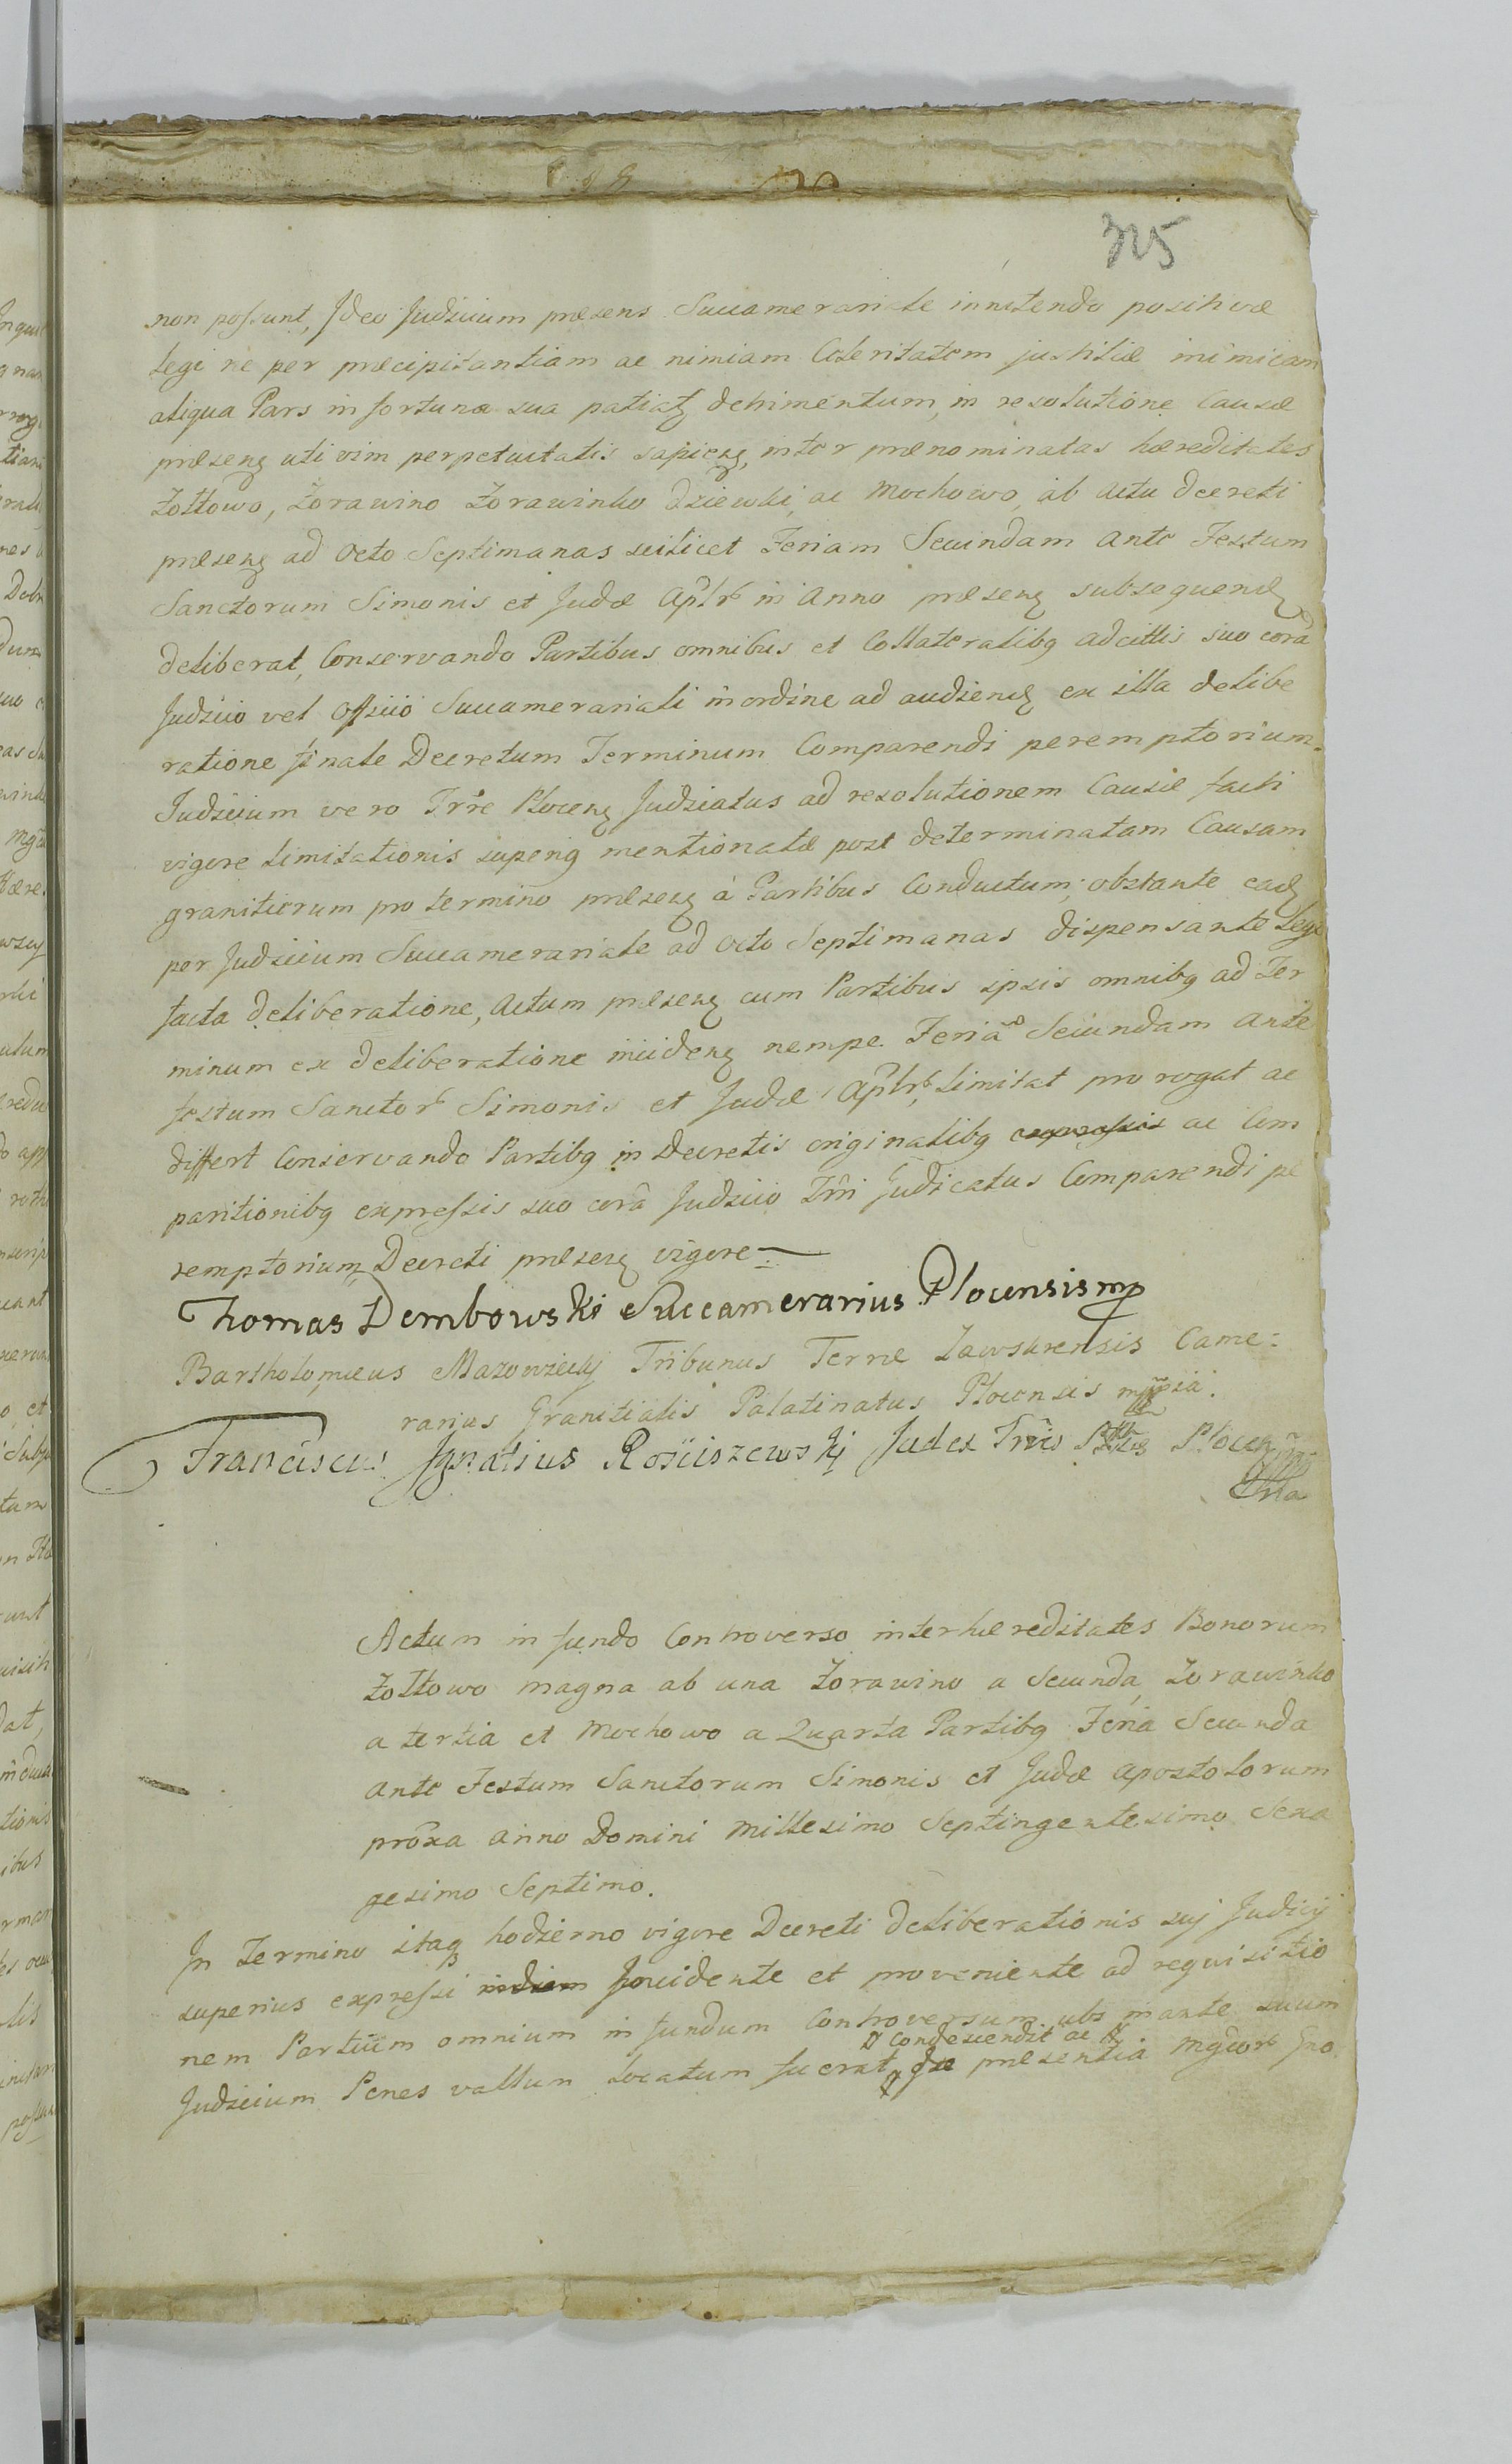 325
non possunt, Ideo Judicium præsens Succamerariale innitendo positivæ
legi ne per præcipitantiam ac nimiam Celeritatem justitiæ inimicam
aliqua Pars in fortuna sua patiatꝫ detrimentum, in resolutione Causæ
præsenꝫ uti vim perpetuitatis sapienꝫ, inter prænominatas hæreditates
Żołtowo, Żorawino Żorawinko Dziewki, ac Mochowo, ab actu Decreti
præsenꝫ ad Octo Septimanas scilicet Feriam Secundam Ante Festum
Sanctorum Simonis et Judæ Aplr̃ in Anno præsenꝫ subsequenꝫ
deliberat, Conservando Partibus omnibus et Collateralibꝫ adcitis suo corã
Judicio vel Officio Succamerariali in ordine ad audienꝫ ex illa delibe
ratione finale Decretum Terminum Comparendi peremptorium.
Judicium vero Trr̃e Plocenꝫ Judiciatus ad resolutionem Causæ facti
vigore limitationis superiꝫ mentionatæ post determinatam Causam
granitierum pro termino præsenꝫ à Partibus Conductum, obstante eadꝫ
per Judicium Succamerariale ad octo Septimanas dispensante Lege
facta deliberatione, Actum præsenꝫ cum Partibus ipsis omnibꝫ ad Ter
minum ex deliberatione incidenꝫ nempe Feriã Secundam Ante
festum Sanctor̃ Simonis et Judæ Aplr̃ limitat prorogat ac
differt Conservando Partibꝫ in Decretis originalibꝫ expressis ac Com
paritionibꝫ expressis suo corã Judicio Trr̃i Judicatus Comparendi pe
remptorium Decreti præsenꝫ vigore
Thomas Dembowski Succamerarius Plocensis mp
Bartholomæus Mazowiecky Tribunus Terræ Zawskrensis Came:
rarius Granitialis Palatinatus Plocensis mp̃pia.
Franciscus Ignatius Rosciszewskÿ Judex Trr̃is Plocenꝫ
Actum in fundo Controverso inter hæreditates Bonorum
Żołtowo magna ab una Żorawino a Secunda, Żorawinko
a tertia et Mochowo a Quarta Partibꝫ Feria Secunda
Ante Festum Sanctorum Simonis et Judæ Apostolorum
prõxa Anno Domini Millesimo Septingentesimo Sexa
gesimo Septimo.
In Termino itaqꝫ hodierno vigore Decreti deliberationis suj Judicij
superius expressi Incidente et proveniente ad requisitio
nem Partium omnium in fundum Controversum ubi in ante suum
Condescendit ac
Judicium Penes vallum locatum fuerat, præsentia Mgcor̃ Gno.